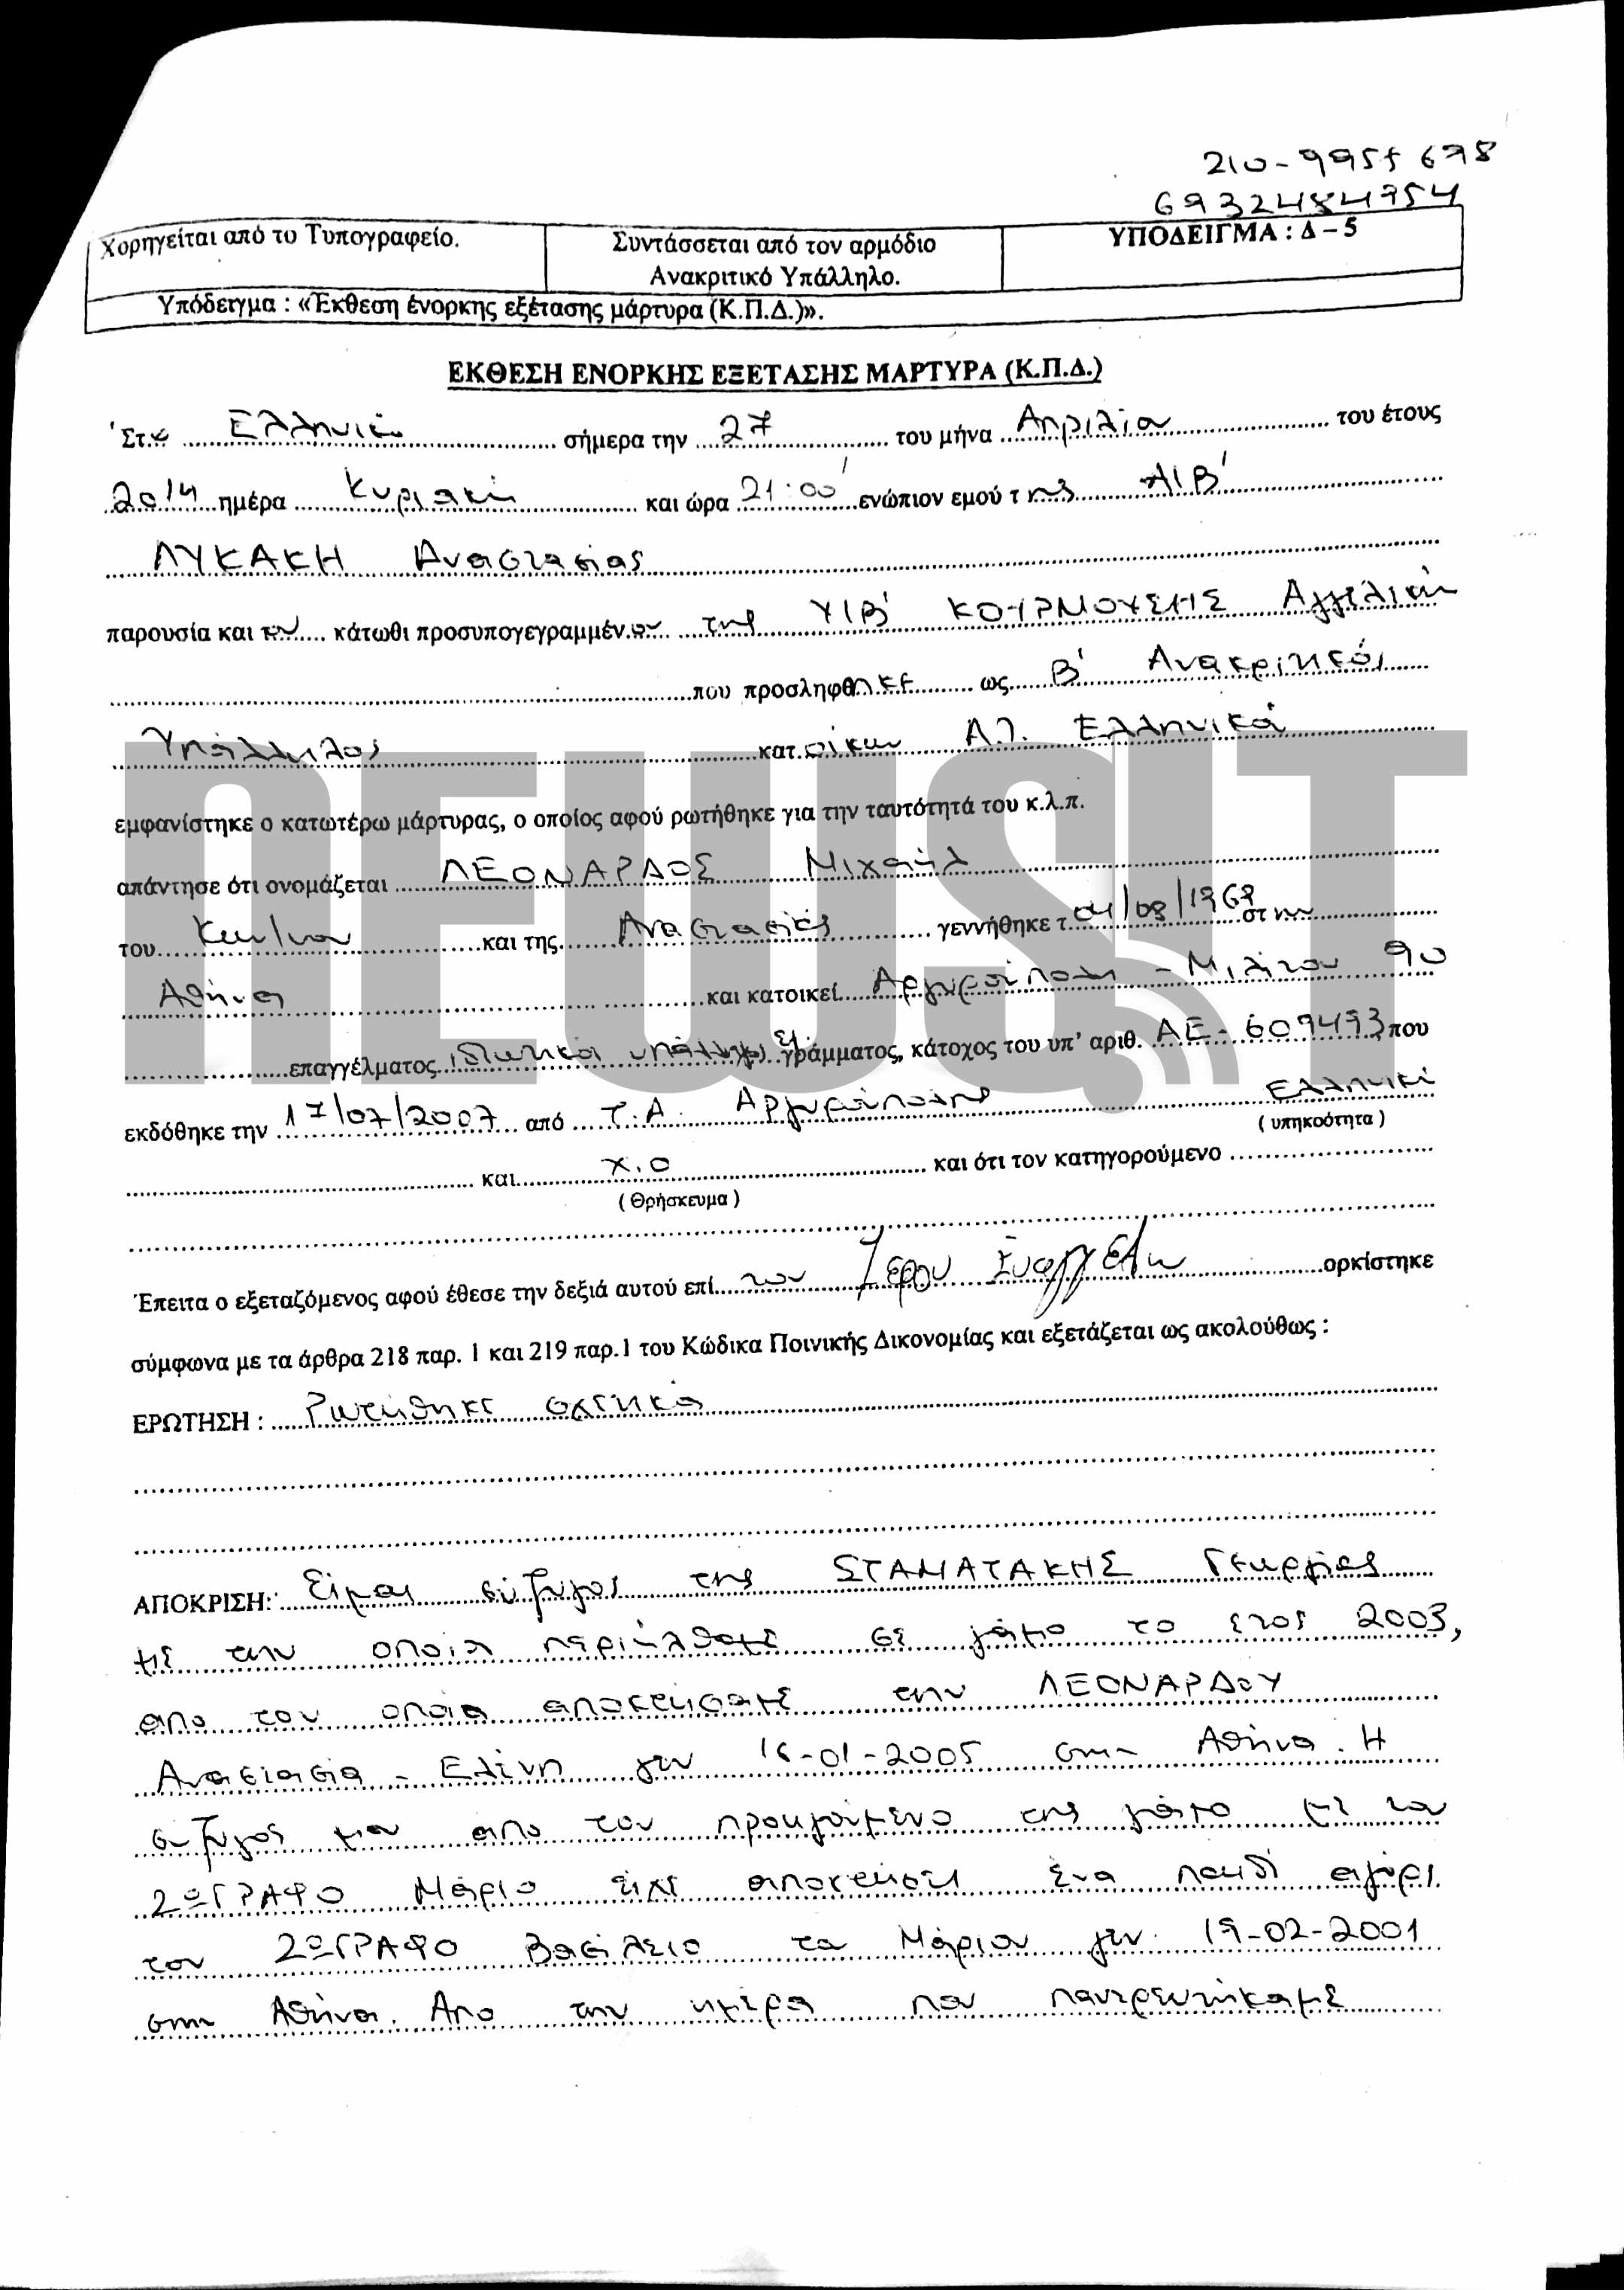 210-995 5 698
6932484754
Χορηγείται από το Τυπογραφείο.
Συντάσσεται από τον αρμόδιο
Ανακριτικό Υπάλληλο.
ΥΠΟΔΕΙΓΜΑ : Δ – 5
Υπόδειγμα : «Έκθεση ένορκης εξέτασης μάρτυρα (Κ.Π.Δ.)».
ΕΚΘΕΣΗ ΕΝΟΡΚΗΣ ΕΞΕΤΑΣΗΣ ΜΑΡΤΥΡΑ (Κ.Π.Δ.)
Στο Ελληνικό σήμερα την 27 του μήνα Απριλίου του έτους
2014 ημέρα Κυριακή και ώρα 21:00' ενώπιον εμού της Α/Β'
ΛΥΚΑΚΗ Αναστασίας
παρουσία και του κάτωθι προσυπογεγραμμένου της Υ/Β' ΚΟΥΡΜΟΥΣΗΣ Αγγελική
που προσλήφθηκε ως Β' Ανακριτικός
Υπάλληλος κατοίκου Α.Τ. Ελληνικού
εμφανίστηκε ο κατωτέρω μάρτυρας, ο οποίος αφού ρωτήθηκε για την ταυτότητά του κ.λ.π.
απάντησε ότι ονομάζεται ΛΕΟΝΑΡΔΟΣ Μιχαήλ
του Κων/νου και της Αναστασίας γεννήθηκε τ 04/08/1969 στην
Αθήνα και κατοικεί Αργυρούπολη - Μιλήτου 90
επαγγέλματος ιδιωτικού υπάλληλος γράμματος, κάτοχος του υπ' αριθ. ΑΕ-609493 που
εκδόθηκε την 17/07/2007 από Τ.Α. Αργυρούπολης Ελληνική
( υπηκοότητα )
και Χ.Ο και ότι τον κατηγορούμενο
( Θρήσκευμα )
Έπειτα ο εξεταζόμενος αφού έθεσε την δεξιά αυτού επί του Ιερού Ευαγγελίου ορκίστηκε
σύμφωνα με τα άρθρα 218 παρ. 1 και 219 παρ.1 του Κώδικα Ποινικής Δικονομίας και εξετάζεται ως ακολούθως :
ΕΡΩΤΗΣΗ : Ρωτήθηκε σχετικά
ΑΠΟΚΡΙΣΗ: Είμαι σύζυγος της ΣΤΑΜΑΤΑΚΗΣ Γεωργίας
με την οποία περιήλθαμε σε γάμο το έτος 2003,
απο τον οποίο αποκτήσαμε την ΛΕΟΝΑΡΔΟΥ
Αναστασία - Ελένη γεν 16-01-2005 στην Αθήνα. Η
σύζυγος μου απο τον προηγούμενο της γάμο με τον
ΖΩΓΡΑΦΟ Μάριο είχε αποκτήσει ένα παιδί αγόρι
τον ΖΩΓΡΑΦΟ Βασίλειο του Μάριου γεν. 19-02-2001
στην Αθήνα. Απο την ημέρα που παντρευτήκαμε
NEWSIT